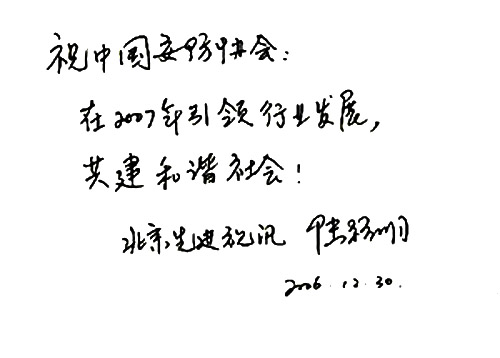 祝中国安防协会：
在2007年引领行业发展，
共建和谐社会！
北京先进视讯
2006.12.30.